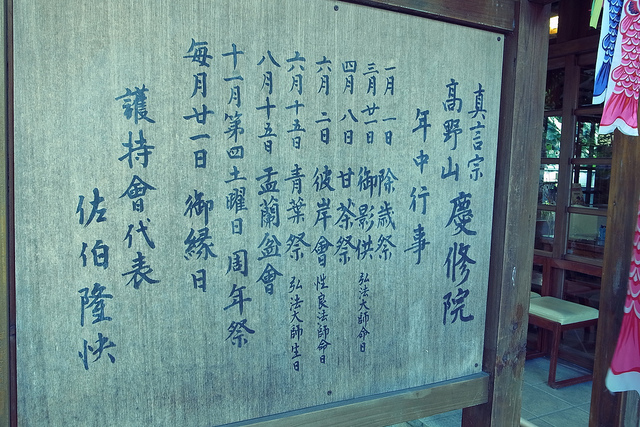 真言宗
高野山 慶修院
年中行事
一月 一日 除歲祭
三月廿一日 御影供 弘法大師命日
四月 八日 甘茶祭
六月 二日 彼岸會 性良法師命日
六月十五日 青葉祭 弘法大師生日
八月十五日 盂蘭盆會
十一月第四土曜日 周年祭
每月廿一日 御縁日
護持會代表
佐伯隆快